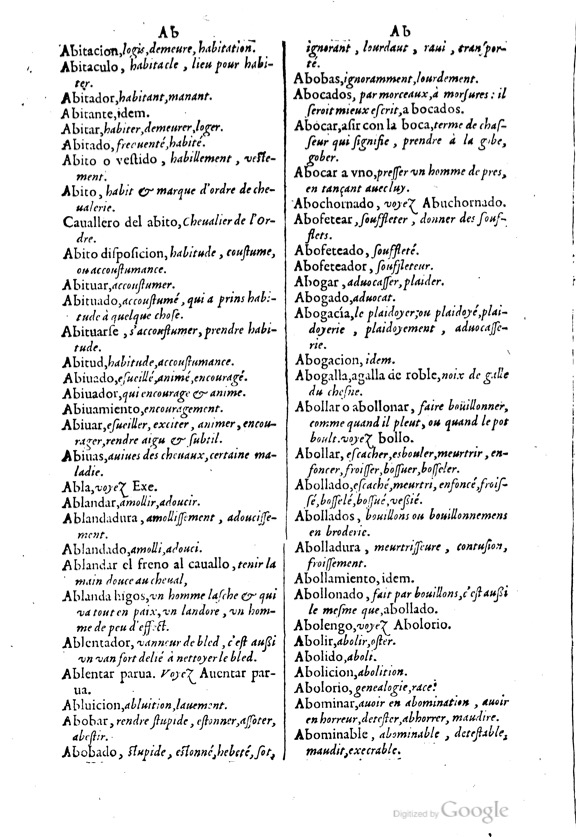 Ab
Abitacion, logis, demeure, habitation.
Abitaculo, habitacle, lieu pour habi-
ter.
Abitador, habitant, manant.
Abitante, idem.
Abitar, habiter, demeurer, loger.
Abitado, frecuenté, habité.
Abito o vestido, habillement, veste-
ment.
Abito, habit & marque d'ordre de che-
ualerie.
Cauallero del abito, Cheualier de l'Or-
dre.
Abito disposicion, habitude, coustume,
ou accoustumance.
Abituar, accoustumer.
Abituado, accoustumé, qui a prins habi-
tude à quelque chose.
Abituarse, s'accoustumer, prendre habi-
tude.
Abitud, habitude, accoustumance.
Abiuado, esueillé, animé, encouragé.
Abiuador, qui encourage & anime.
Abiuamiento, encouragement.
Abiuar, esueiller, exciter, animer, encou-
rager, rendre aigu & subtil.
Abiuas, auiues des cheuaux, certaine ma-
ladie.
Abla, voyez Exe.
Ablandar, amollir, adoucir.
Ablandadura, amollissement, adoucisse-
ment.
Ablandado, amolli, adouci.
Ablandar el freno al cauallo, tenir la
main douce au cheual,
Ablanda higos, vn homme lasche & qui
va tout en paix, vn landore, vn hom-
me de peu d'effect.
Ablentador, vanneur de bled, c'est aussi
vn van fort delié à nettoyer le bled.
Ablentar parua. Voyez Auentar par-
ua.
Abluicion, abluition, lauement.
Abobar, rendre stupide, estonner, assoter,
abestir.
Abobado, stupide, estonné, hebeté, sot,
Ab
ignorant, lourdaut, raui, transpor-
té.
Abobas, ignoramment, lourdement.
Abocados, par morceaux, à morsures: il
seroit mieux escrit, a bocados.
Abocar, asir con la boca, terme de chas-
seur qui signifie, prendre à la gibe,
gober.
Abocar a vno, presser vn homme de pres,
en tançant auec luy.
Abochornado, voyez Abuchornado.
Abofetear, souffleter, donner des souf-
flets.
Abofeteado, souffleté.
Abofeteador, souffleteur.
Abogar, aduocasser, plaider.
Abogado, aduocat.
Abogacia, le plaidoyer, ou plaidoyé, plai-
doyerie, plaidoyement, aduocasse-
rie.
Abogacion, idem.
Abogalla, agalla de roble, noix de galle
du chesne.
Abollar o abollonar, faire boüillonner,
comme quand il pleut, ou quand le pot
boult. voyez bollo.
Abollar, escacher, esbouler, meurtrir, en-
foncer, froisser, bossuer, bosseler.
Abollado, escaché, meurtri, enfoncé, frois-
sé, bosselé, bossué, vessié.
Abollados, bouillons ou bouillonnemens
en broderie.
Abolladura, meurtrisseure, contusion,
froissement.
Abollamiento, idem.
Abollonado, fait par bouillons, c'est aussi
le mesme que, abollado.
Abolengo, voyez Abolorio.
Abolir, abolir, oster.
Abolido, aboli.
Abolicion, abolition.
Abolorio, genealogie, race.
Abominar, auoir en abomination, auoir
en horreur, detester, abhorrer, maudire.
Abominable, abominable, detestable,
maudit, execrable.
Digitized by Google